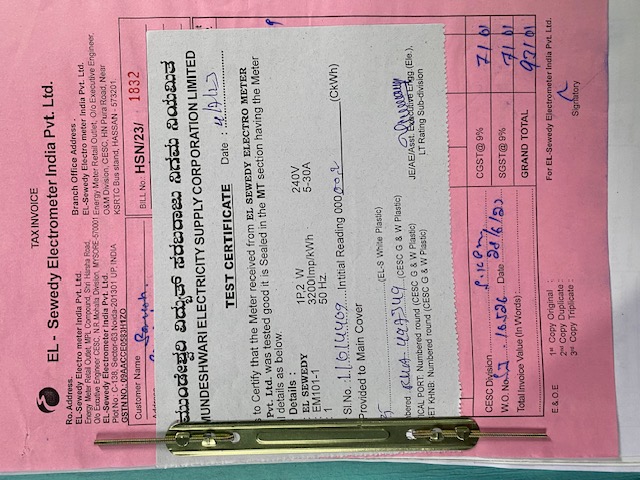 TAX INVOICE
EL - Sewedy Electrometer India Pvt. Ltd.
Ro. Address.
EL-Sewedy Electro meter India Pvt. Ltd.
Energy Meter Retail Outlet, MRT Compound, Shri Harsha Road,
O/o Executive Engineer CESC, N.R. Mohalla Division, MYSORE-570001
EL-Sewedy Electro meter India Pvt. Ltd.
Plot No : C-138, Sector-63 Noida-201301 UP, INDIA
GSTN NO. 09AACCE0583H1ZO
Branch Office Address .
EL-Sewedy Electro meter India Pvt. Ltd.
Energy Meter Retail Outlet, O/o Executive Engineer,
O&M Division, CESC, HN Pura Road, Near
KSRTC Bus stand, HASSAN - 573201.
Customer Name
BILL No. HSN/23/ 1832
ವಿದ್ಯುತ್ ಸರಬರಾಜು ನಿಗಮ ನಿಯಮಿತ
MUNDESHWARI ELECTRICITY SUPPLY CORPORATION LIMITED
TEST CERTIFICATE
Date : 4/7/23
to Certify that the Meter received from EL SEWEDY ELECTRO METER
Pvt. Ltd. was tested good it is Sealed in the MT section having the Meter
details as below
Details :
: EL SEWEDY 1P,2 W 240V
: EM101-1 3200Imp/kWh 5-30A
: 1 50 Hz.
Sl No : 11614409 Intitial Reading 000002 (CkWh)
Provided to Main Cover
(EL-S White Plastic)
(CESC G & W Plastic)
ICAL PORT: Numbered round (CESC G & W Plastic)
ET KHNB: Numbered round (CESC G & W Plastic)
JE/AE/Asst. Executive Engg.(Ele.),
LT Rating Sub-division
CESC Division
W.O. No. 16526 Date 28/6/23
Total Invoice Value (In Words)
CGST@ 9% 71 01
SGST@ 9% 71 01
GRAND TOTAL 931 01
E & O E
1st Copy Original :
2nd Copy Duplicate :
3rd Copy Triplicate :
For EL-Sewedy Electrometer India Pvt. Ltd.
Signatory